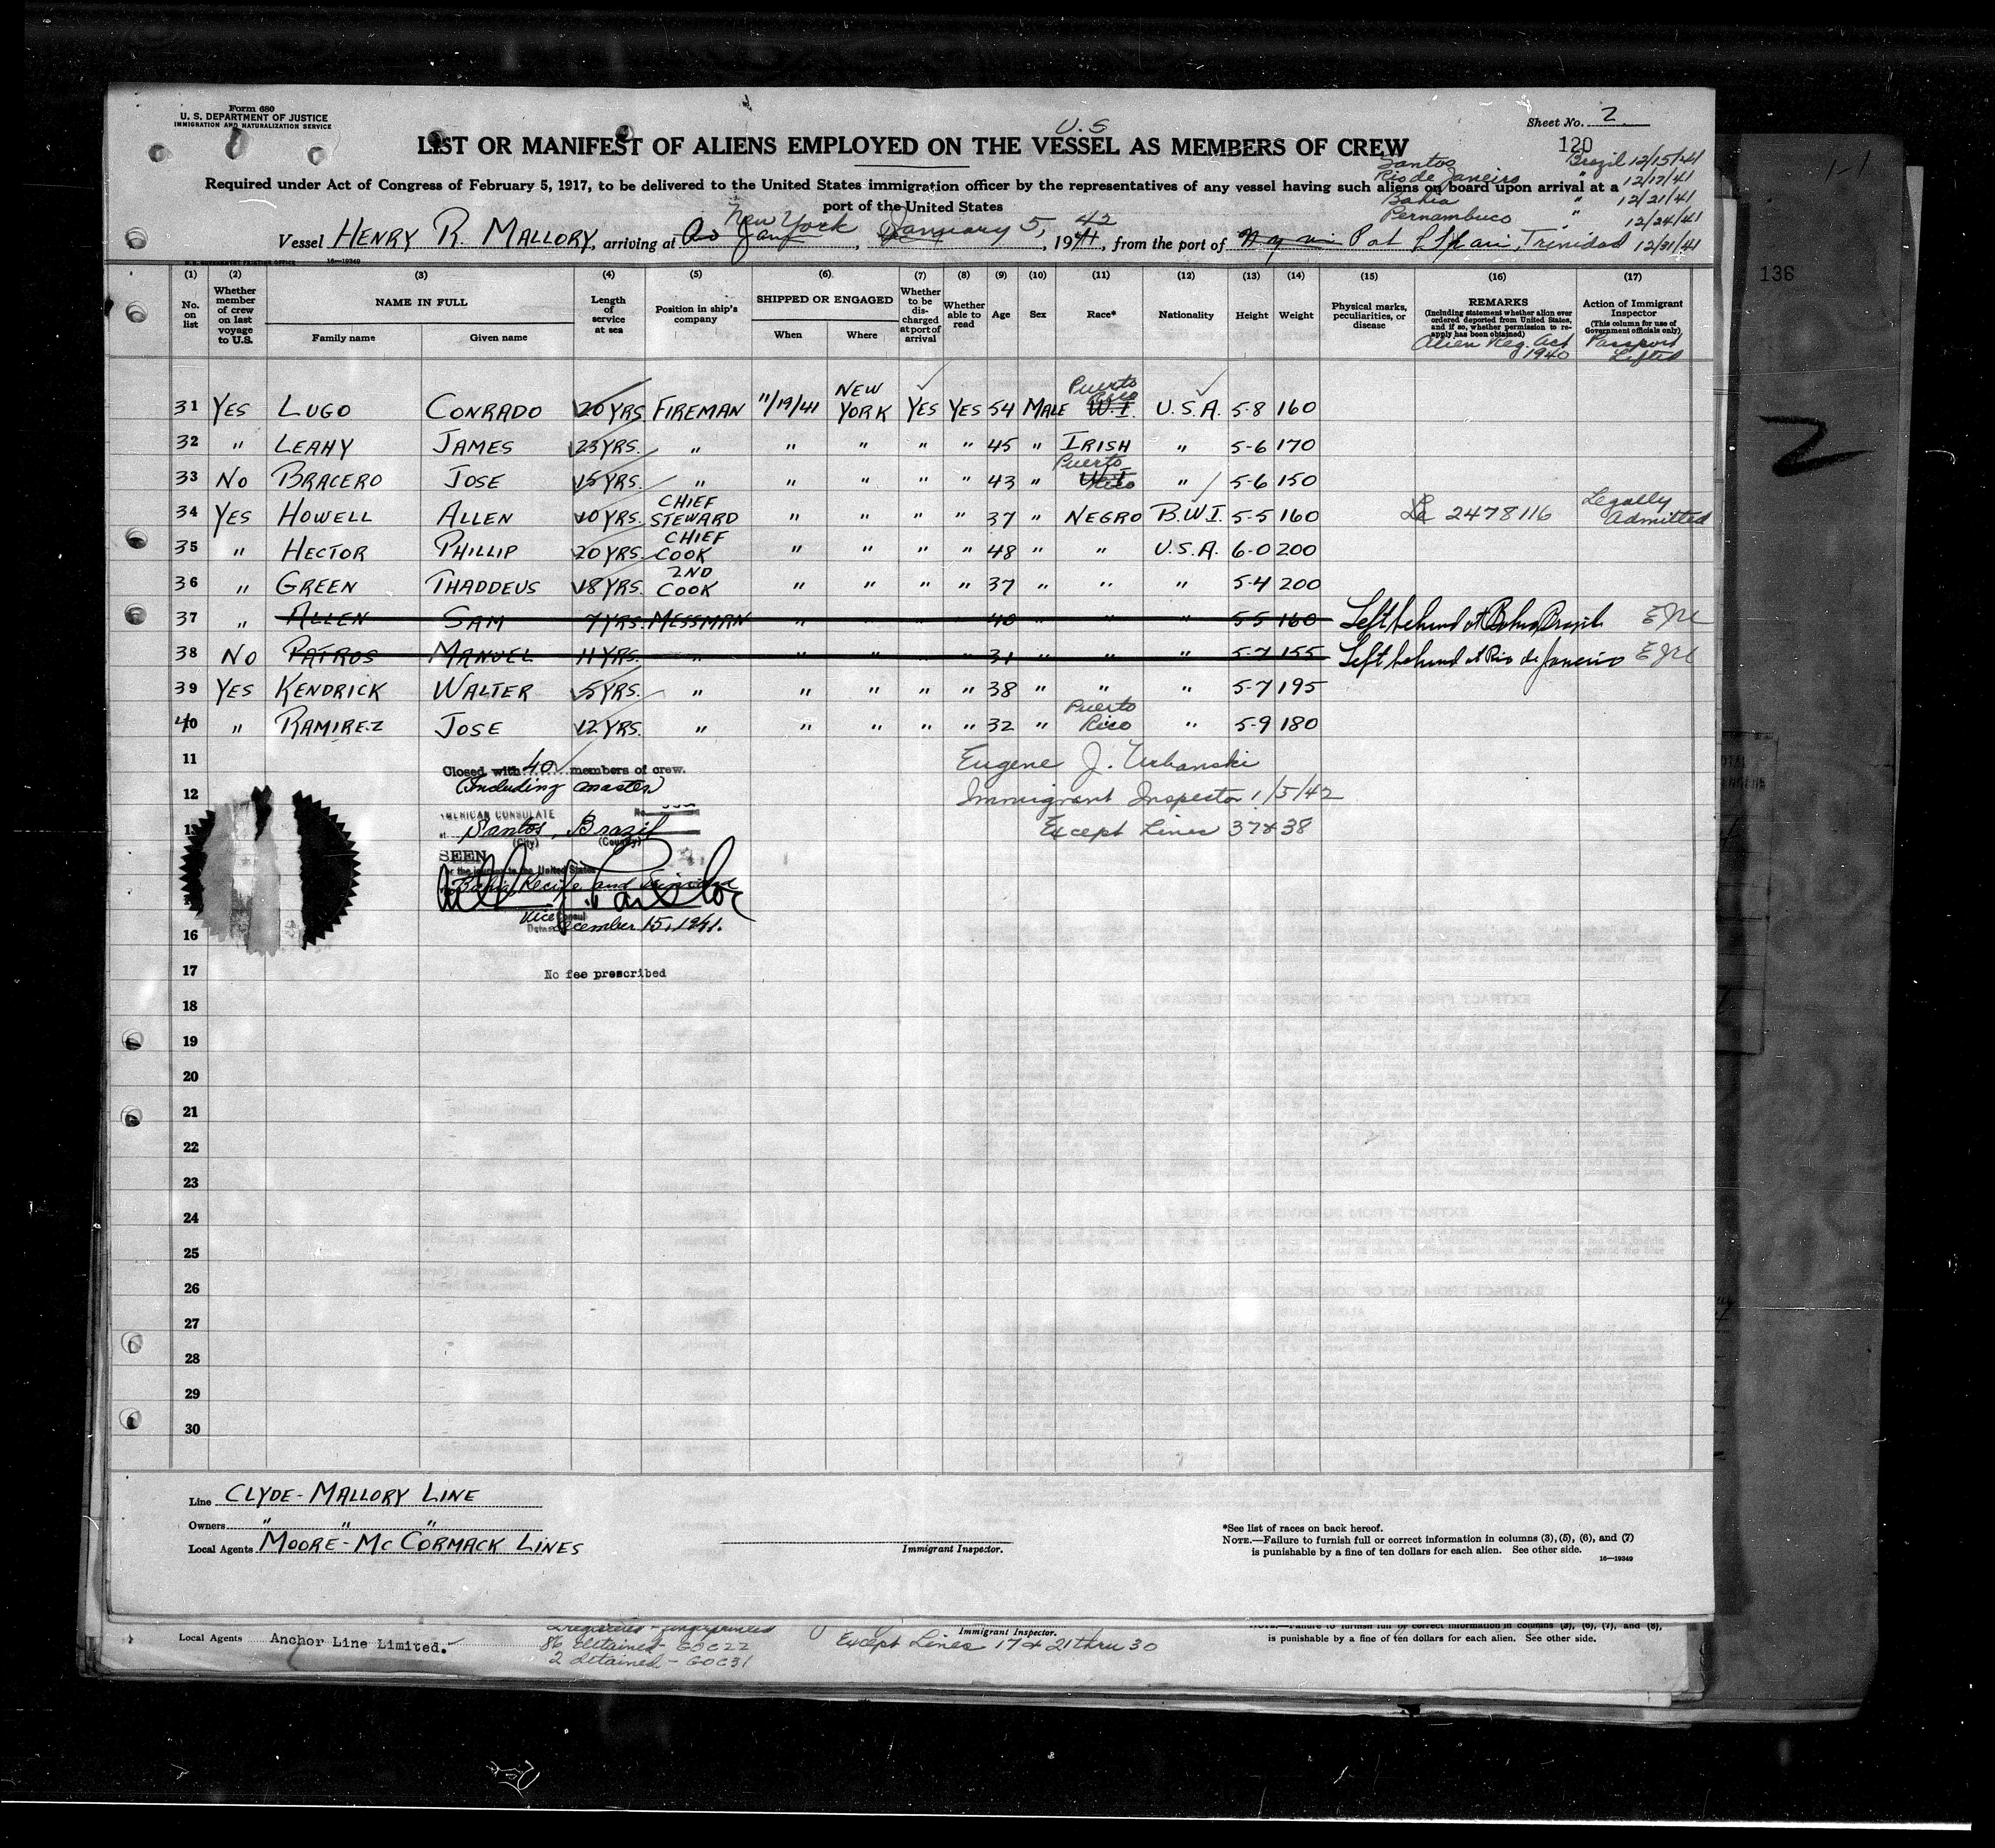 Form 680
U. S. DEPARTMENT OF JUSTICE
IMMIGRATION AND NATURALIZATION SERVICE
Sheet No. 2
120
U.S
LIST OR MANIFEST OF ALIENS EMPLOYED ON THE VESSEL AS MEMBERS OF CREW
Santos Brazil 12/15/41
Rio de Janeiro " 12/17/41
Bahia " 12/21/41
Pernambuco " 12/24/41
Required under Act of Congress of February 5, 1917, to be delivered to the United States immigration officer by the representatives of any vessel having such aliens on board upon arrival at a
port of the United States
Vessel HENRY R. MALLORY, arriving at New York, January 5, 1942, from the port of Trinidad 12/31/41
U.S. GOVERNMENT PRINTING OFFICE 16—19349
(1) (2) (3) (4) (5) (6) (7) (8) (9) (10) (11) (12) (13) (14) (15) (16) (17)
No. on list
Whether member of crew on last voyage to U.S.
NAME IN FULL
Family name Given name
Length of service at sea
Position in ship's company
SHIPPED OR ENGAGED
When Where
Whether to be discharged at port of arrival
Whether able to read
Age Sex Race* Nationality Height Weight
Physical marks, peculiarities, or disease
REMARKS
(Including statement whether alien ever ordered deported from United States, and if so, whether permission to reapply has been obtained)
Alien Reg. Act 1940
Action of Immigrant Inspector
(This column for use of Government officials only)
Passport Lifted
31 YES LUGO CONRADO 20 YRS. FIREMAN 11/19/41 NEW YORK YES YES 54 MALE W.I. Puerto Rico U.S.A. 5-8 160
32 " LEAHY JAMES 23 YRS. " " " " " 45 " IRISH " 5-6 170
33 NO BRACERO JOSE 15 YRS. " " " " " 43 " W.I. Puerto Rico " 5-6 150
34 YES HOWELL ALLEN 10 YRS. CHIEF STEWARD " " " " 37 " NEGRO B.W.I. 5-5 160 2478116 Legally Admitted
35 " HECTOR PHILLIP 20 YRS. CHIEF COOK " " " " 48 " " U.S.A. 6-0 200
36 " GREEN THADDEUS 18 YRS. 2ND COOK " " " " 37 " " " 5-4 200
37 " ALLEN SAM 7 YRS. MESSMAN " " " " 40 " " " 5-5 160 Left behind at Bahia Brazil EJU
38 NO PATROS MANUEL 11 YRS. " " " " " 31 " " " 5-7 155 Left behind at Rio de Janeiro EJU
39 YES KENDRICK WALTER 5 YRS. " " " " " 38 " " " 5-7 195
40 " RAMIREZ JOSE 12 YRS. " " " " " 32 " Puerto Rico " 5-9 180
11 Closed with 40 members of crew. Eugene J. Urbanski
12 (Including master) Immigrant Inspector 1/5/42
13 Except Lines 37 & 38
AMERICAN CONSULATE No.
at Santos, Brazil
(City) (Country)
SEEN
For the journey to the United States
Bahia, Recife and Trinidad
Vice Consul
Date December 15, 1941.
16
17 No fee prescribed
18
19
20
21
22
23
24
25
26
27
28
29
30
Line CLYDE-MALLORY LINE
Owners " " "
Local Agents MOORE-MCCORMACK LINES
Immigrant Inspector.
*See list of races on back hereof.
NOTE.—Failure to furnish full or correct information in columns (3), (5), (6), and (7)
is punishable by a fine of ten dollars for each alien. See other side.
16—19349
Local Agents Anchor Line Limited.
86 detained - GOC22
2 detained - GOC31
Immigrant Inspector.
Except Lines 17 & 21 thru 30
NOTE.—Failure to furnish full or correct information in columns (3), (6), (7), and (8),
is punishable by a fine of ten dollars for each alien. See other side.
136
2